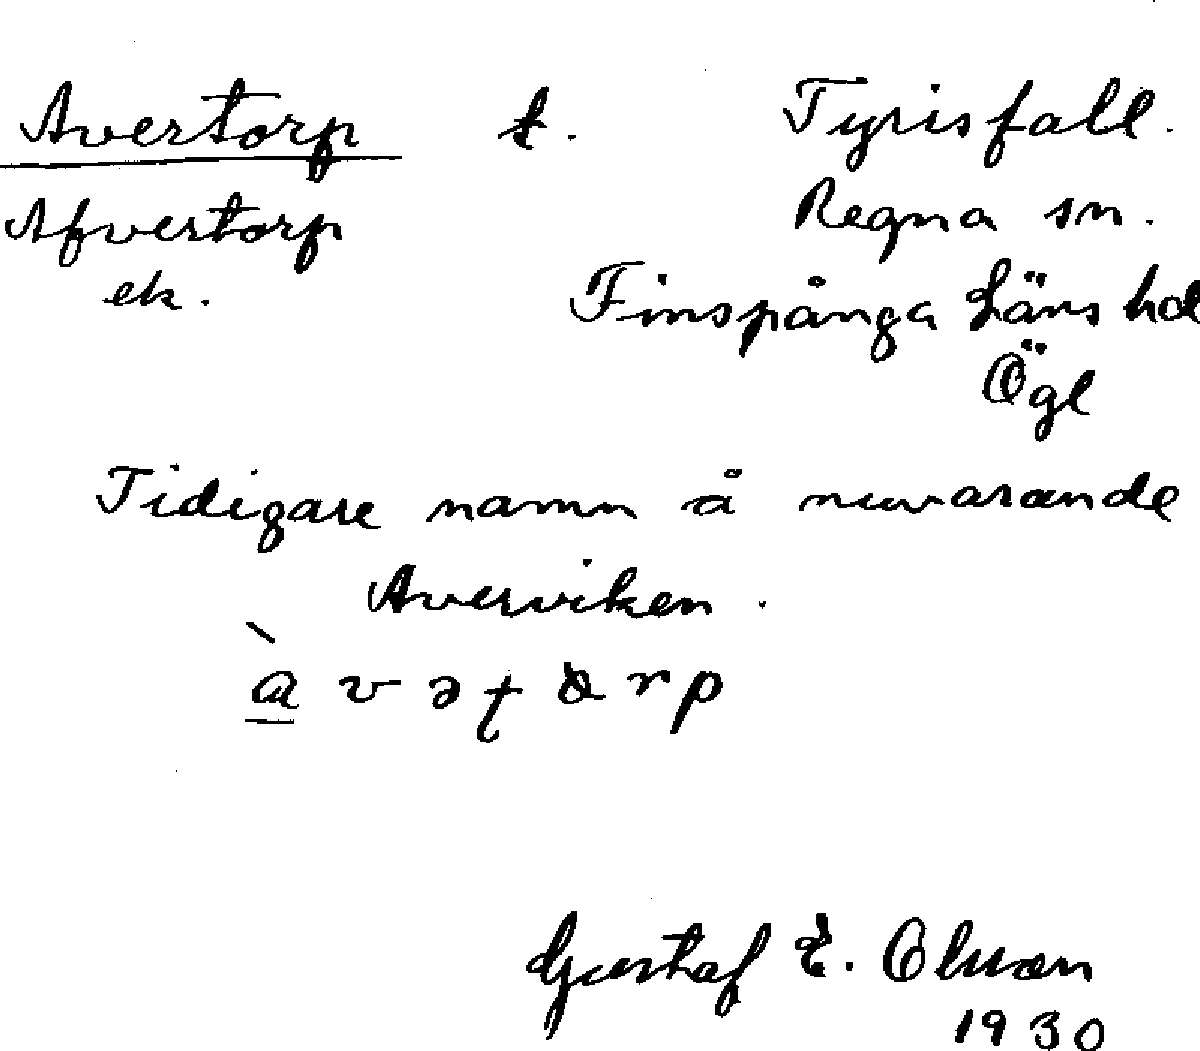 Avertorp t. Tyrisfall.
Afvertorp Regna sn.
ek. Finspånga läns hd
Ögl
Tidigare namn å nuvarande
Averviken.
Gustaf E. Olsson
1930